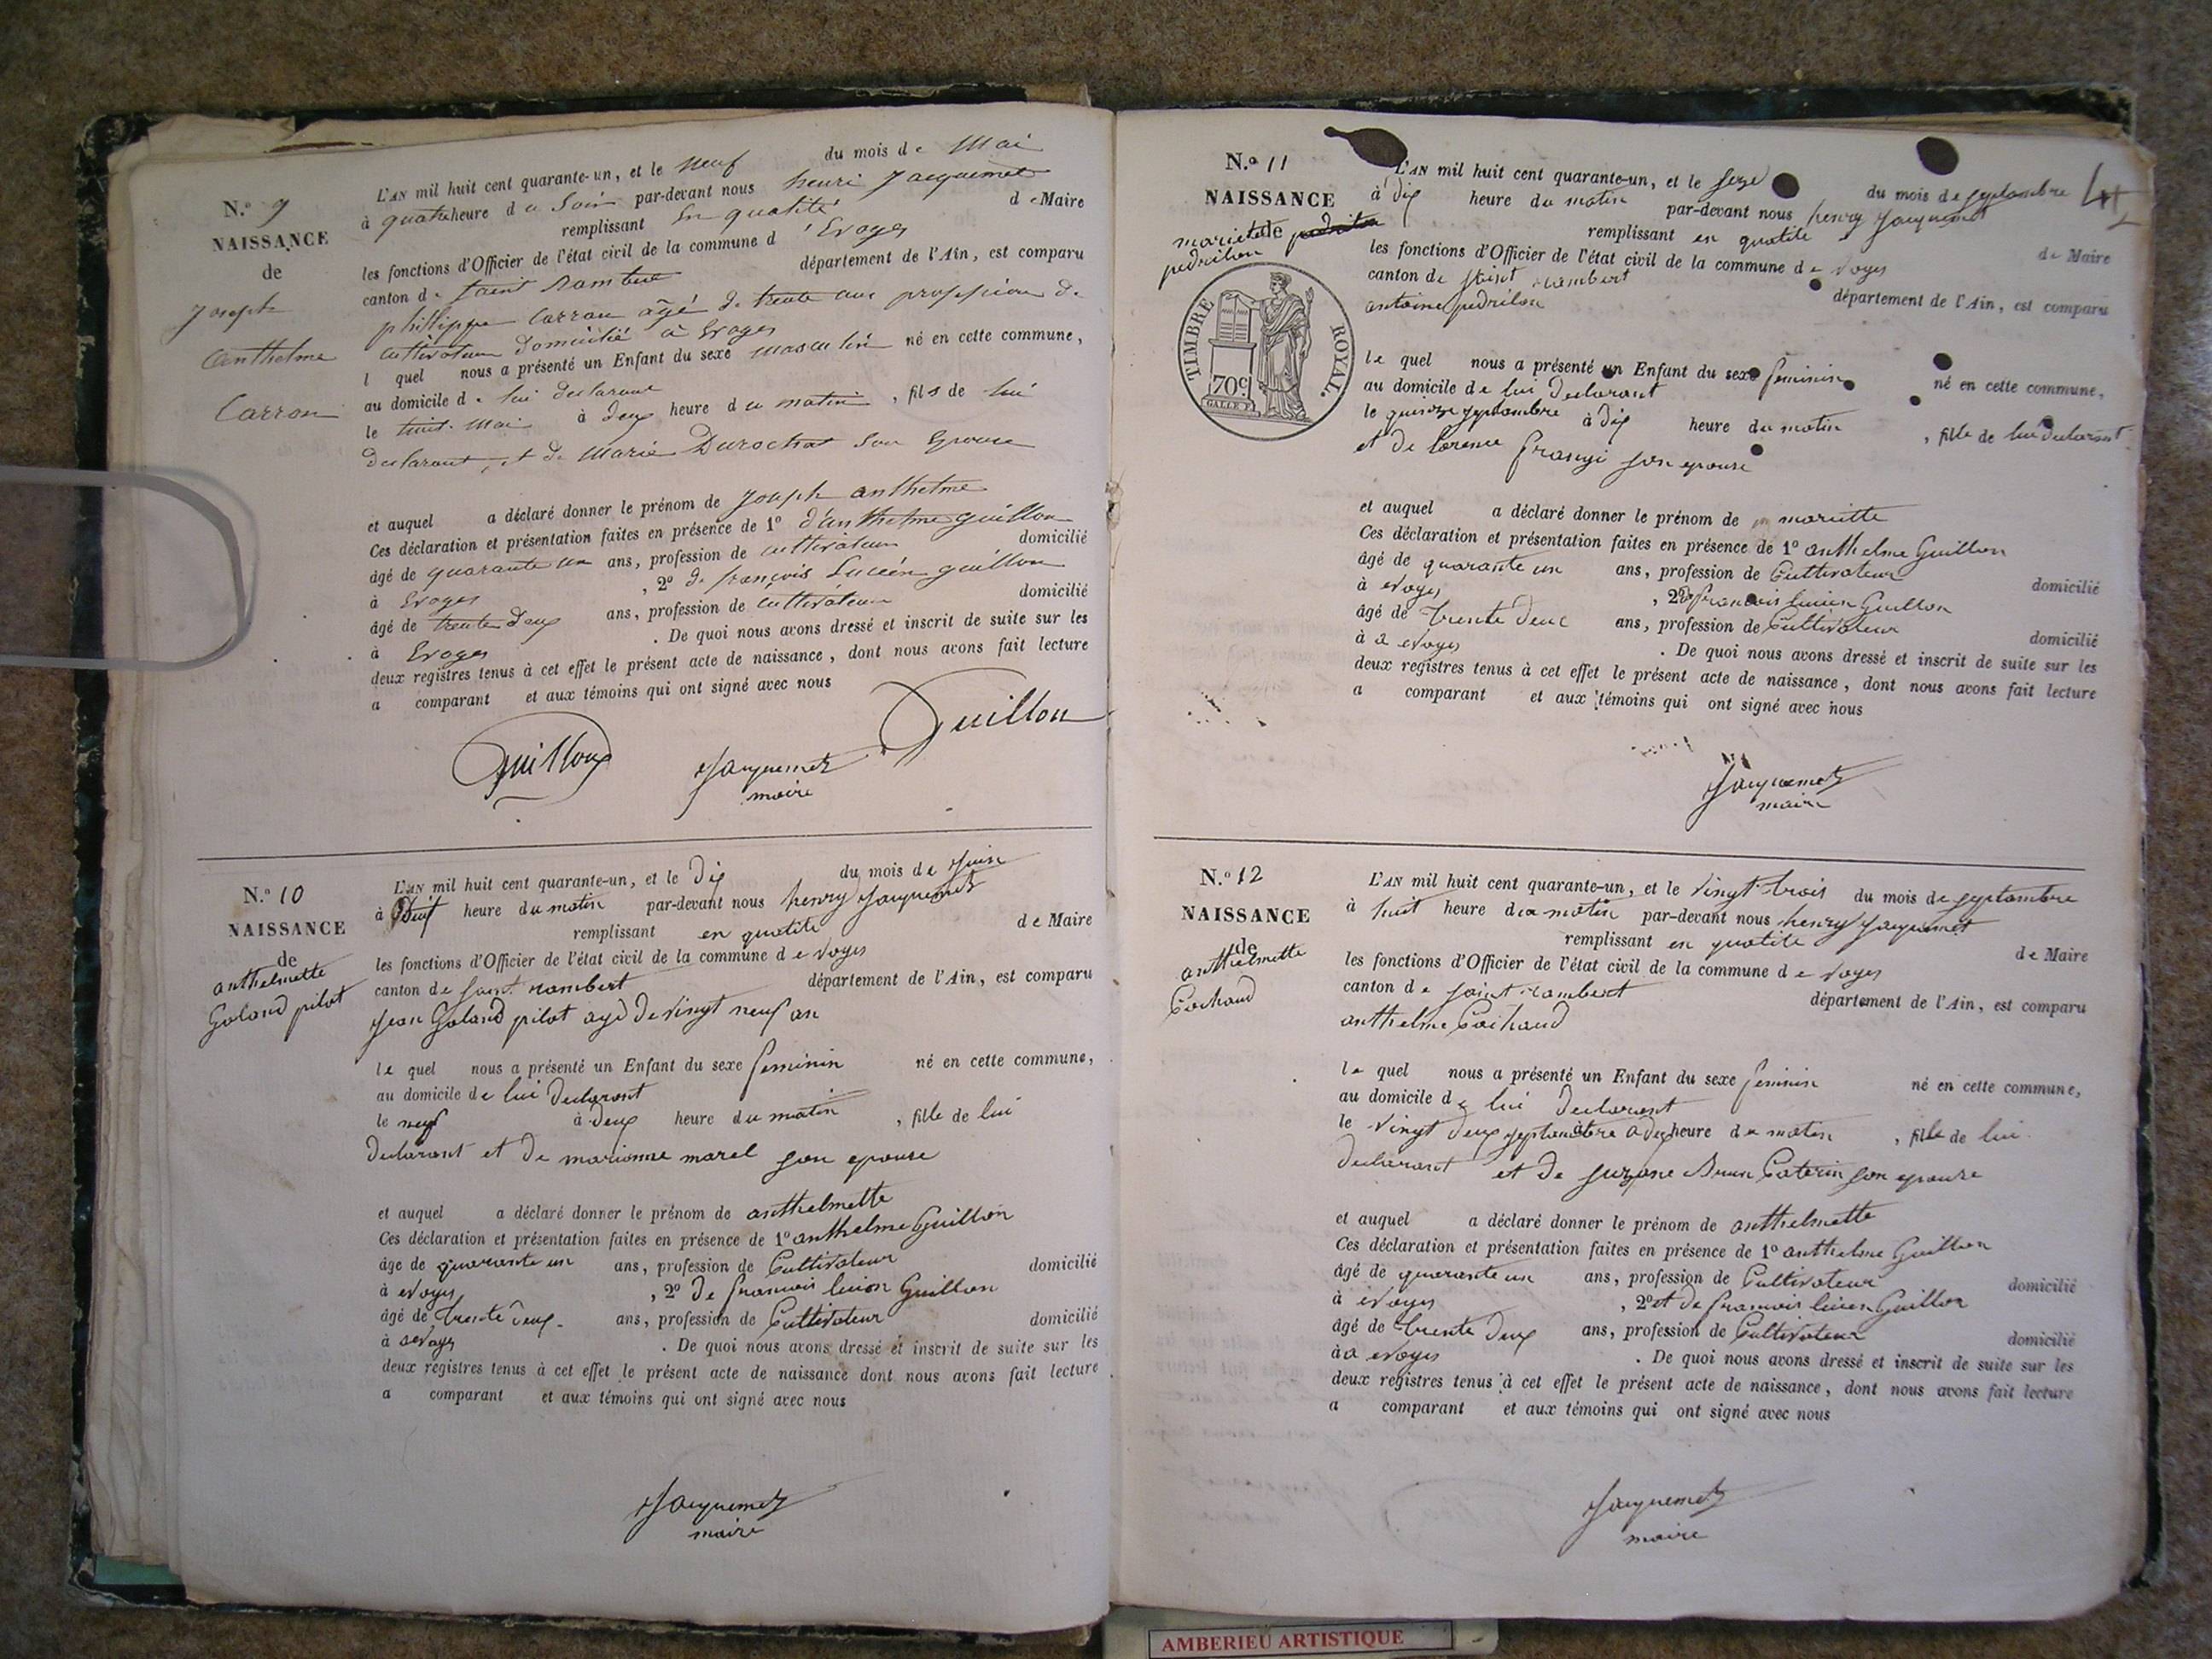 N.º 9
NAISSANCE
de
Joseph
Anthelme
Carron
L'AN mil huit cent quarante-un, et le neuf du mois de Mai
à quatre heure du Soir par-devant nous henri Jacquemet
remplissant En qualité de Maire
les fonctions d'Officier de l'état civil de la commune d'Evoges
canton de Saint Rambert département de l'Ain, est comparu
phillippe Carron âgé de trente ans profession de
cultivateur domicilié à Evoges
l quel nous a présenté un Enfant du sexe masculin né en cette commune,
au domicile de lui declarant
le huit Mai à deux heure du matin, fils de lui
declarant, et de Marie Durochat son Epouse
et auquel a déclaré donner le prénom de Joseph anthelme
Ces déclaration et présentation faites en présence de 1º d'anthelme guillon
âgé de quarante un ans, profession de cultivateur domicilié
à Evoges, 2º de françois Lucien guillon
âgé de trente deux ans, profession de cultivateur domicilié
à Evoges. De quoi nous avons dressé et inscrit de suite sur les
deux registres tenus à cet effet le présent acte de naissance, dont nous avons fait lecture
a comparant et aux témoins qui ont signé avec nous
Guillon
Jacquemet
maire
Guillon
N.º 10
NAISSANCE
de
anthelmette
Goland pilot
L'AN mil huit cent quarante-un, et le dix du mois de Juin
à heure du matin par-devant nous henry Jacquemet
remplissant en qualité de Maire
les fonctions d'Officier de l'état civil de la commune de voges
canton de saint rambert département de l'Ain, est comparu
Jean Goland pilot agé de vingt neuf an
le quel nous a présenté un Enfant du sexe feminin né en cette commune,
au domicile de lui declarant
le neuf à deux heure du matin, fille de lui
declarant et de marianne marel son epouse
et auquel a déclaré donner le prénom de anthelmette
Ces déclaration et présentation faites en présence de 1º anthelme Guillon
âge de quarante un ans, profession de Cultivateur domicilié
à evoges, 2º de francois lucien Guillon
âgé de trente deux ans, profession de Cultivateur domicilié
à evoges. De quoi nous avons dressé et inscrit de suite sur les
deux registres tenus à cet effet le présent acte de naissance dont nous avons fait lecture
a comparant et aux témoins qui ont signé avec nous
Jacquemet
maire
N.º 11
NAISSANCE
de
mariette
pedrilon
TIMBRE ROYAL.
70c
L'AN mil huit cent quarante-un, et le seze du mois de septambre
à dix heure du matin par-devant nous henry Jacquemet
remplissant en qualité de Maire
les fonctions d'Officier de l'état civil de la commune de voges
canton de saint rambert département de l'Ain, est comparu
antoine pedrilon
le quel nous a présenté un Enfant du sexe feminin né en cette commune,
au domicile de lui declarant
le quinze septambre à dix heure du matin, fille de lui declarant
et de lorence son epouse
et auquel a déclaré donner le prénom de mariette
Ces déclaration et présentation faites en présence de 1º anthelme Guillon
âgé de quarante un ans, profession de Cultivateur domicilié
à evoges, 2º de francois lucien Guillon
âgé de trente deux ans, profession de Cultivateur domicilié
à a evoges. De quoi nous avons dressé et inscrit de suite sur les
deux registres tenus à cet effet le présent acte de naissance, dont nous avons fait lecture
a comparant et aux témoins qui ont signé avec nous
Jacquemet
maire
N.º 12
NAISSANCE
de
anthelmette
Cochaud
L'AN mil huit cent quarante-un, et le vingt trois du mois de septambre
à huit heure du matin par-devant nous henry Jacquemet
remplissant en qualité de Maire
les fonctions d'Officier de l'état civil de la commune de voges
canton de saint rambert département de l'Ain, est comparu
anthelme Cochaud
le quel nous a présenté un Enfant du sexe feminin né en cette commune,
au domicile de lui declarant
le vingt deux septambre à dix heure du matin, fille de lui
declarant et de suzane Brun Caterin son epouse
et auquel a déclaré donner le prénom de anthelmette
Ces déclaration et présentation faites en présence de 1º anthelme Guillon
âgé de quarante un ans, profession de Cultivateur domicilié
à evoges, 2º et de francois lucien Guillon
âgé de trente deux ans, profession de Cultivateur domicilié
à a evoges. De quoi nous avons dressé et inscrit de suite sur les
deux registres tenus à cet effet le présent acte de naissance, dont nous avons fait lecture
a comparant et aux témoins qui ont signé avec nous
Jacquemet
maire
AMBERIEU ARTISTIQUE